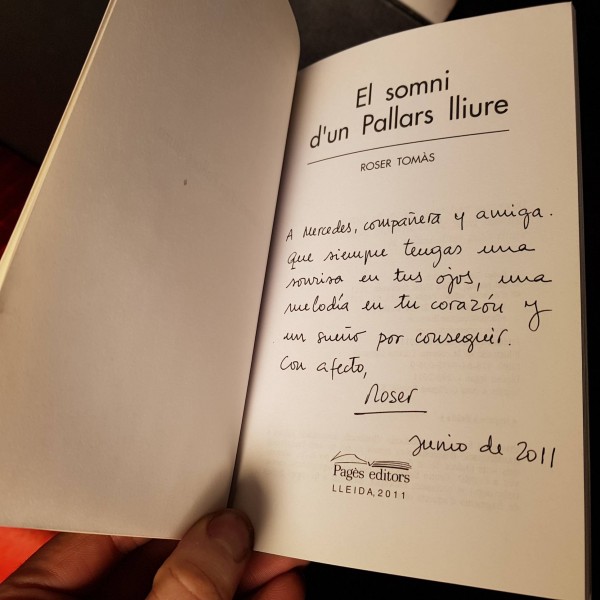 El somni
d'un Pallars lliure
ROSER TOMÀS
A Mercedes, compañera y amiga.
Que siempre tengas una
sonrisa en tus ojos, una
melodía en tu corazón y
un sueño por conseguir.
Con afecto,
Roser
Junio de 2011
Pagès editors
LLEIDA, 2011